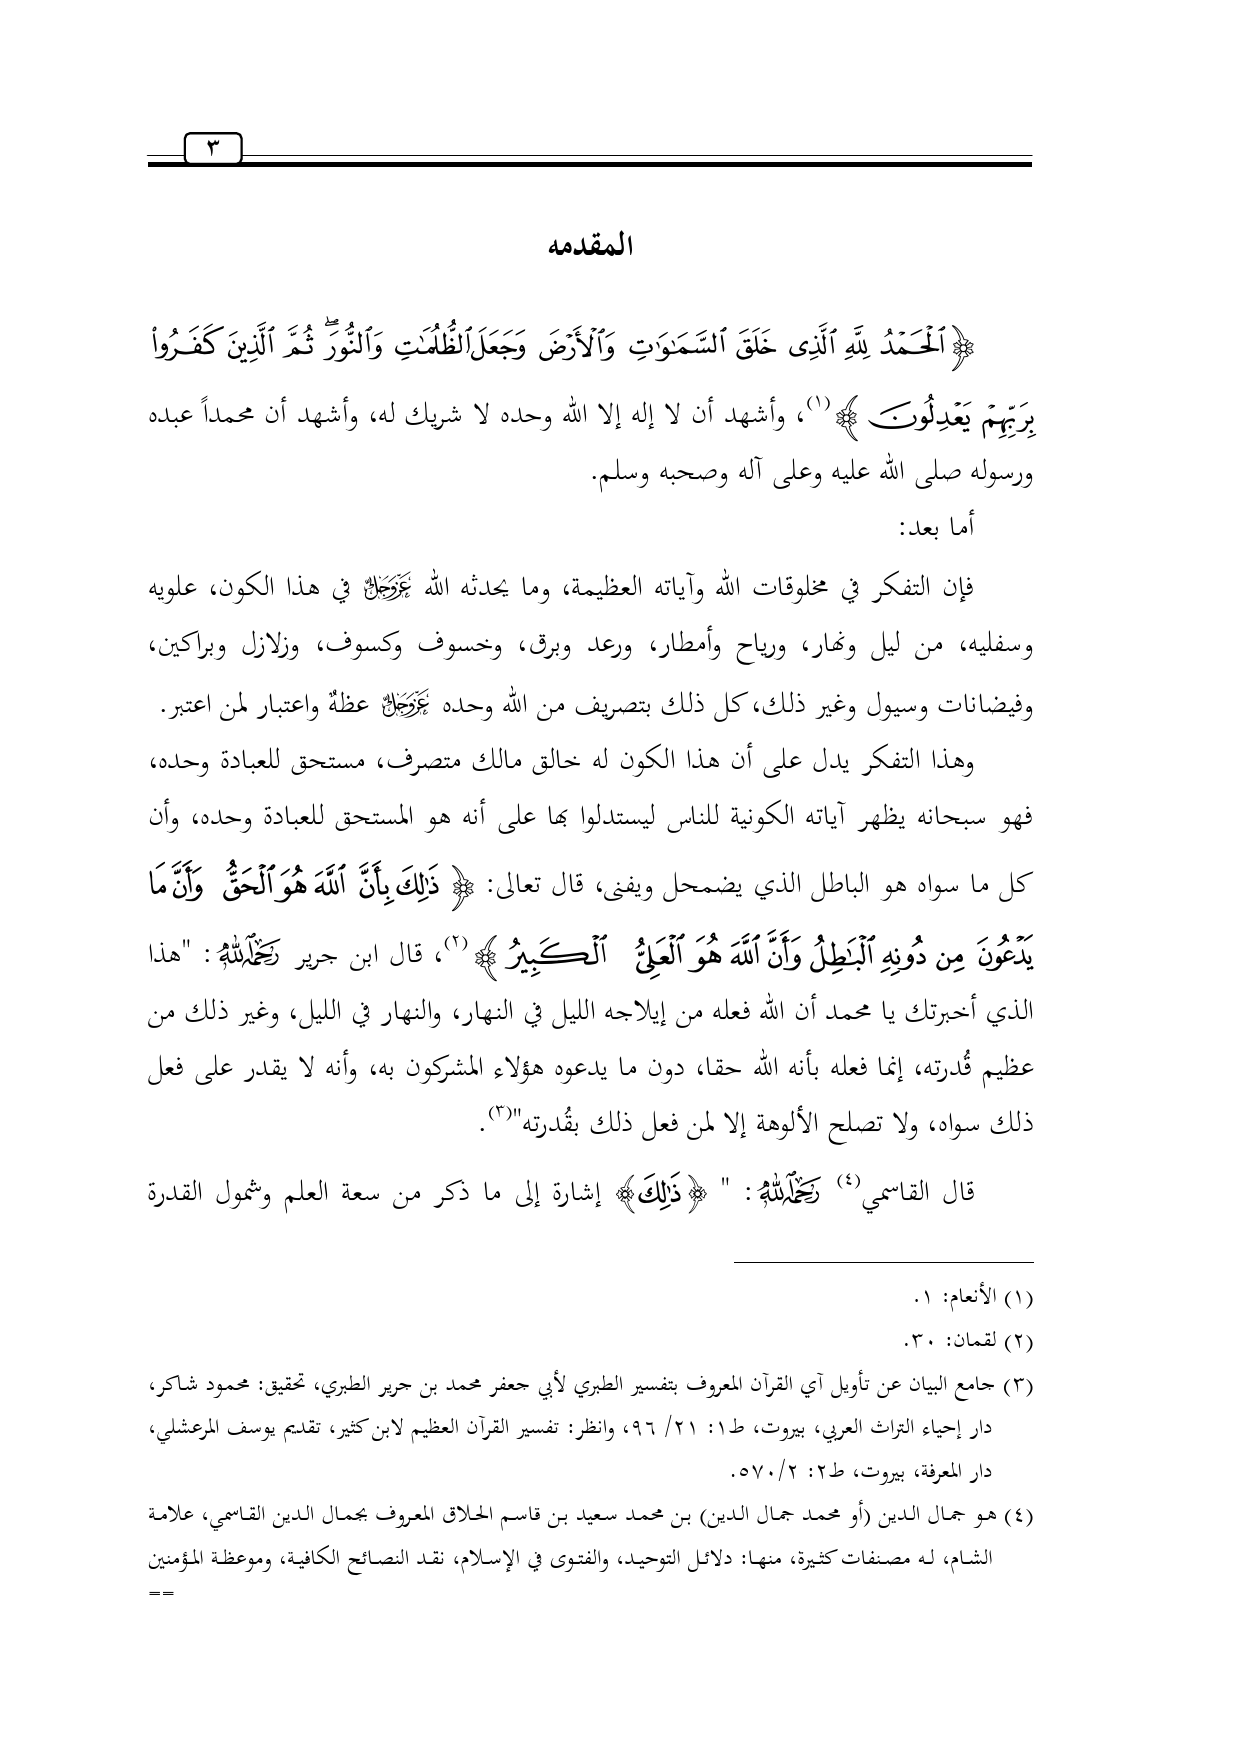 ٣
المقدمه
﴿ٱلْحَمْدُ لِلَّهِ ٱلَّذِى خَلَقَ ٱلسَّمَٰوَٰتِ وَٱلْأَرْضَ وَجَعَلَ ٱلظُّلُمَٰتِ وَٱلنُّورَ ۖ ثُمَّ ٱلَّذِينَ كَفَرُوا۟
بِرَبِّهِمْ يَعْدِلُونَ﴾(١)، وأشهد أن لا إله إلا الله وحده لا شريك له، وأشهد أن محمداً عبده
ورسوله صلى الله عليه وعلى آله وصحبه وسلم.
أما بعد:
فإن التفكر في مخلوقات الله وآياته العظيمة، وما يحدثه الله عَزَّوَجَلَّ في هذا الكون، علويه
وسفليه، من ليل ونهار، ورياح وأمطار، ورعد وبرق، وخسوف وكسوف، وزلازل وبراكين،
وفيضانات وسيول وغير ذلك، كل ذلك بتصريف من الله وحده عَزَّوَجَلَّ عظةٌ واعتبار لمن اعتبر.
وهذا التفكر يدل على أن هذا الكون له خالق مالك متصرف، مستحق للعبادة وحده،
فهو سبحانه يظهر آياته الكونية للناس ليستدلوا بها على أنه هو المستحق للعبادة وحده، وأن
كل ما سواه هو الباطل الذي يضمحل ويفنى، قال تعالى: ﴿ ذَٰلِكَ بِأَنَّ ٱللَّهَ هُوَ ٱلْحَقُّ وَأَنَّ مَا
يَدْعُونَ مِن دُونِهِ ٱلْبَٰطِلُ وَأَنَّ ٱللَّهَ هُوَ ٱلْعَلِىُّ ٱلْكَبِيرُ ﴾(٢)، قال ابن جرير رَحِمَهُ ٱللَّهُ: "هذا
الذي أخبرتك يا محمد أن الله فعله من إيلاجه الليل في النهار، والنهار في الليل، وغير ذلك من
عظيم قُدرته، إنما فعله بأنه الله حقا، دون ما يدعوه هؤلاء المشركون به، وأنه لا يقدر على فعل
ذلك سواه، ولا تصلح الألوهة إلا لمن فعل ذلك بقُدرته"(٣).
قال القاسمي(٤) رَحِمَهُ ٱللَّهُ: " ﴿ذَٰلِكَ﴾ إشارة إلى ما ذكر من سعة العلم وشمول القدرة
(١) الأنعام: ١.
(٢) لقمان: ٣٠.
(٣) جامع البيان عن تأويل آي القرآن المعروف بتفسير الطبري لأبي جعفر محمد بن جرير الطبري، تحقيق: محمود شاكر،
دار إحياء التراث العربي، بيروت، ط١: ٢١/ ٩٦، وانظر: تفسير القرآن العظيم لابن كثير، تقديم يوسف المرعشلي،
دار المعرفة، بيروت، ط٢: ٢/ ٥٧٠.
(٤) هو جمال الدين (أو محمد جمال الدين) بن محمد سعيد بن قاسم الحلاق المعروف بجمال الدين القاسمي، علامة
الشام، له مصنفات كثيرة، منها: دلائل التوحيد، والفتوى في الإسلام، نقد النصائح الكافية، وموعظة المؤمنين
==